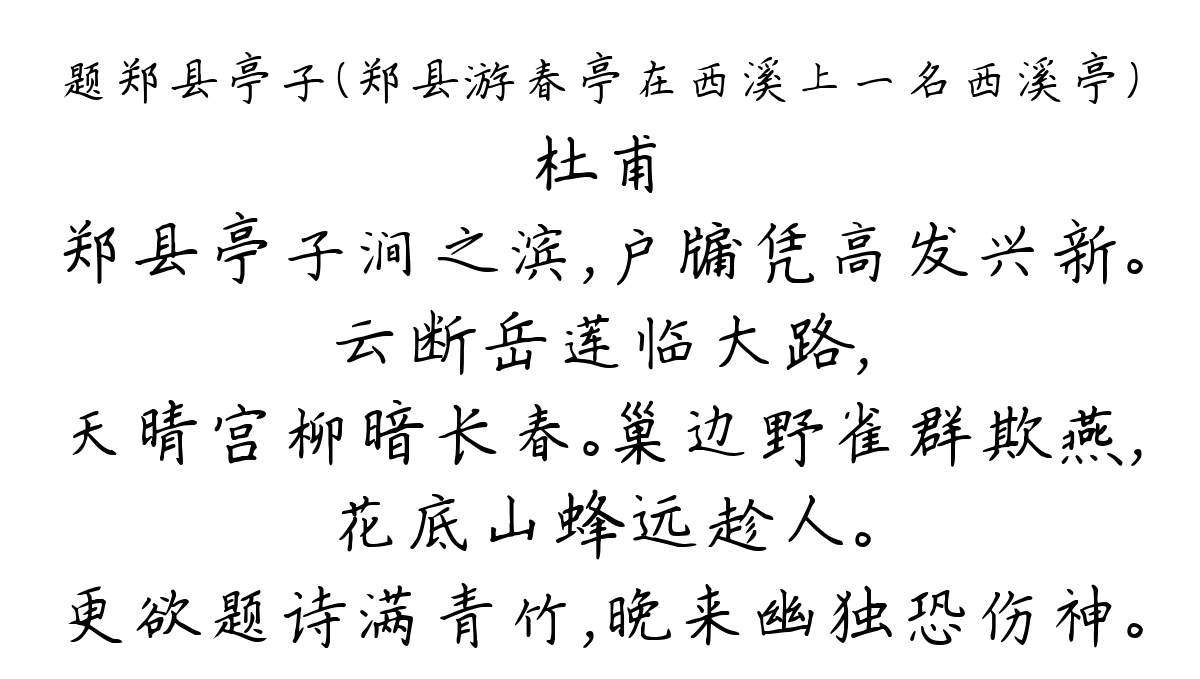 题郑县亭子(郑县游春亭在西溪上一名西溪亭)
杜甫
郑县亭子涧之滨,户牖凭高发兴新。
云断岳莲临大路,
天晴宫柳暗长春。巢边野雀群欺燕,
花底山蜂远趁人。
更欲题诗满青竹,晚来幽独恐伤神。